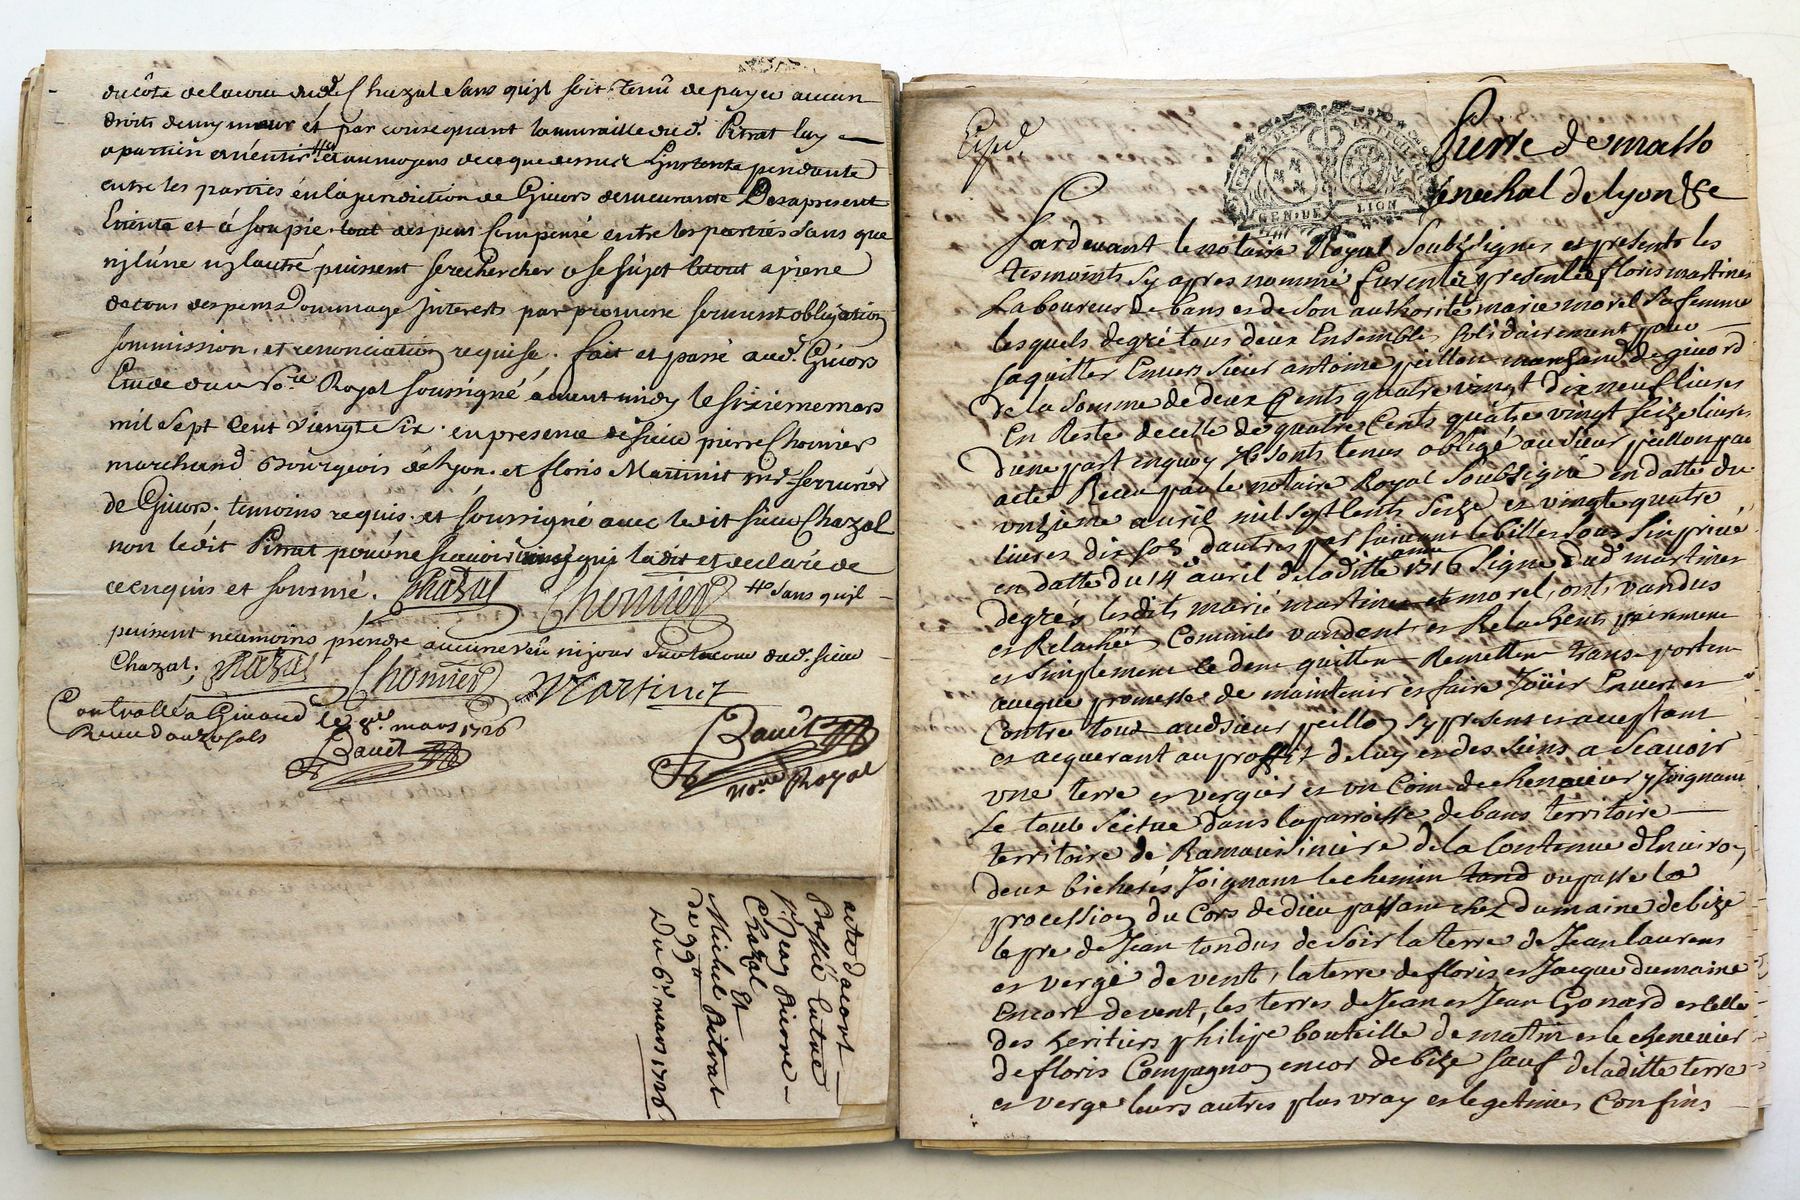 du côté de la cour dud. Sr. Chazal sans quyl soit tenû de payer aucun
droits de my meur et par consequant la muraille dud. Pitrat luy
apartien en entir et au moyens de ce que dessus Linstente pendante
entre les parties en la juridiction de Givors demeurante Desapresent
Eteinte et asoupie tout despens Compensé entre les parties sans que
nj lúne nj lautré puissent se rechercher a se sújet a peine
de tous despens Dommage Interests par promesse serment obligation
sommission, et renonciation requise. fait et passé aud. Givors
Etude du no.re Royal soussigné avent midy le sixieme mars
mil Sept Cent Viengt Six. en presence de sieur pierre Chomier
marchand Bourgeois de Lyon. et floris Martinit md. serrurier
de Givors. temoins requis. et soussigné avec ledit sieur Chazal
non ledit Pitrat pour ne scavoir qui la dit et declaré de
ce enquis et sommé. Chazal Chomier # sans quyl
puissent neamoins prendre aucune veu ni jour sur la cour dud. sieur
Chazal; Chazal Chomier Martinet
Controllé a Givord le 8e. mars 1726
Receu douze sols
Bauet
Bauet
no.re Royal
acte dacort
Passée Entre
Sr. Jean Pierre
Chazal
Et
Michel Pitrat
de 99 tt
Du 6e. mars 1726
Exped.
GEN. DE LION
Pierre de masso
senechal de lyon &c
Pardevant le notaire Royal Soubzsigner et presents les
tesmoints sy apres nommé furent presente floris martinet
Laboureur de bans et de son authorité marie morel sa femme
lesquels de gré tous deux Ensemble solidairement pour
saquitter Envers sieur antoine peillon marchand de givord
de la somme de deux Cents quatre vingt dix neuf livres
En Reste de celle de quatre Cents quatre vingt seize livres
dune part enquoy ils sonts tenus obligé au sieur peillon par
acte Receu par le notaire Royal Soubsigné en datte du
onzieme avril mil sept Cents Seize et vingt quatre
livres dix sols dautres par suivant le billet sous sin privé
en datte du 14e avril de laditte anné 1716 signé dud martinet
de grés lesdits marié martinet et morel, onts vandus
et Relachéé Comme ils vandent et Relachent purement
et simplement Cedent quittent Remettent transportent
avecque promesse de maintenir et faire Joüir Envers et
Contre tous audsieur peillon sy present et aceptant
et aequerant au proffit de luy et des siens a Scavoir
une terre et vergier et un Coin de chenevier y Joignant
Le tout scitue dans la parroisse de bans territoire
territoire de Ramousiniere de la Contenue dEnviron
deux bicherés Joignant le chemin tand ou passe la
procession du Cors de dieu passant chez dumaine de bize
le pre de Jean tondus de soir la terre de Jean laurens
et verge de vent, la terre de floris et Jacque dumaine
Encore de vent, les terres de Jean et Jean Gonard et celle
des heritiers philipe bouteille de matin et le chenevier
de floris Compagnon encor de bize sauf de laditte terre
et verge leurs autres plus vray et legetimes Confins